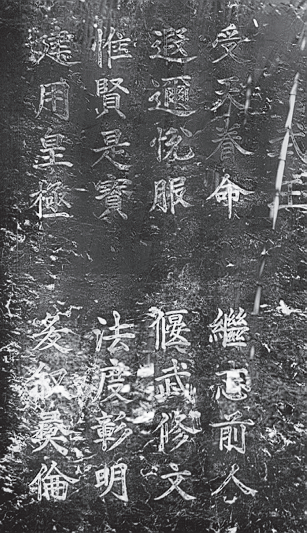 武王
受天眷命 繼志前人
遐邇悅服 偃武修文
惟賢是寶 法度彰明
建用皇極 爰叙彝倫